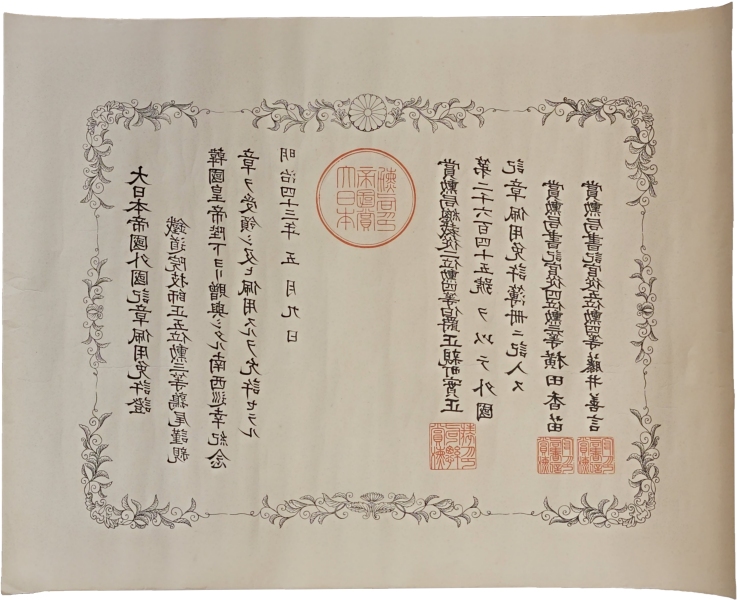 大日本帝國外國記章佩用免許證
鐵道院技師正五位勳三等鵜尾謹親
韓國皇帝陛下ヨリ贈與シタル南西巡幸紀念
章ヲ受領シ及ヒ佩用スルヲ允許セラル
明治四十三年五月九日
大日本
帝國賞
勳局印
賞勳局總裁從二位勳四等伯爵正親町實正
第二千六百四十五號ヲ以テ外國
記章佩用免許簿冊ニ記入ス
賞勳局書記官從四位勳三等横田香苗
賞勳局書記官從五位勳四等藤井善言